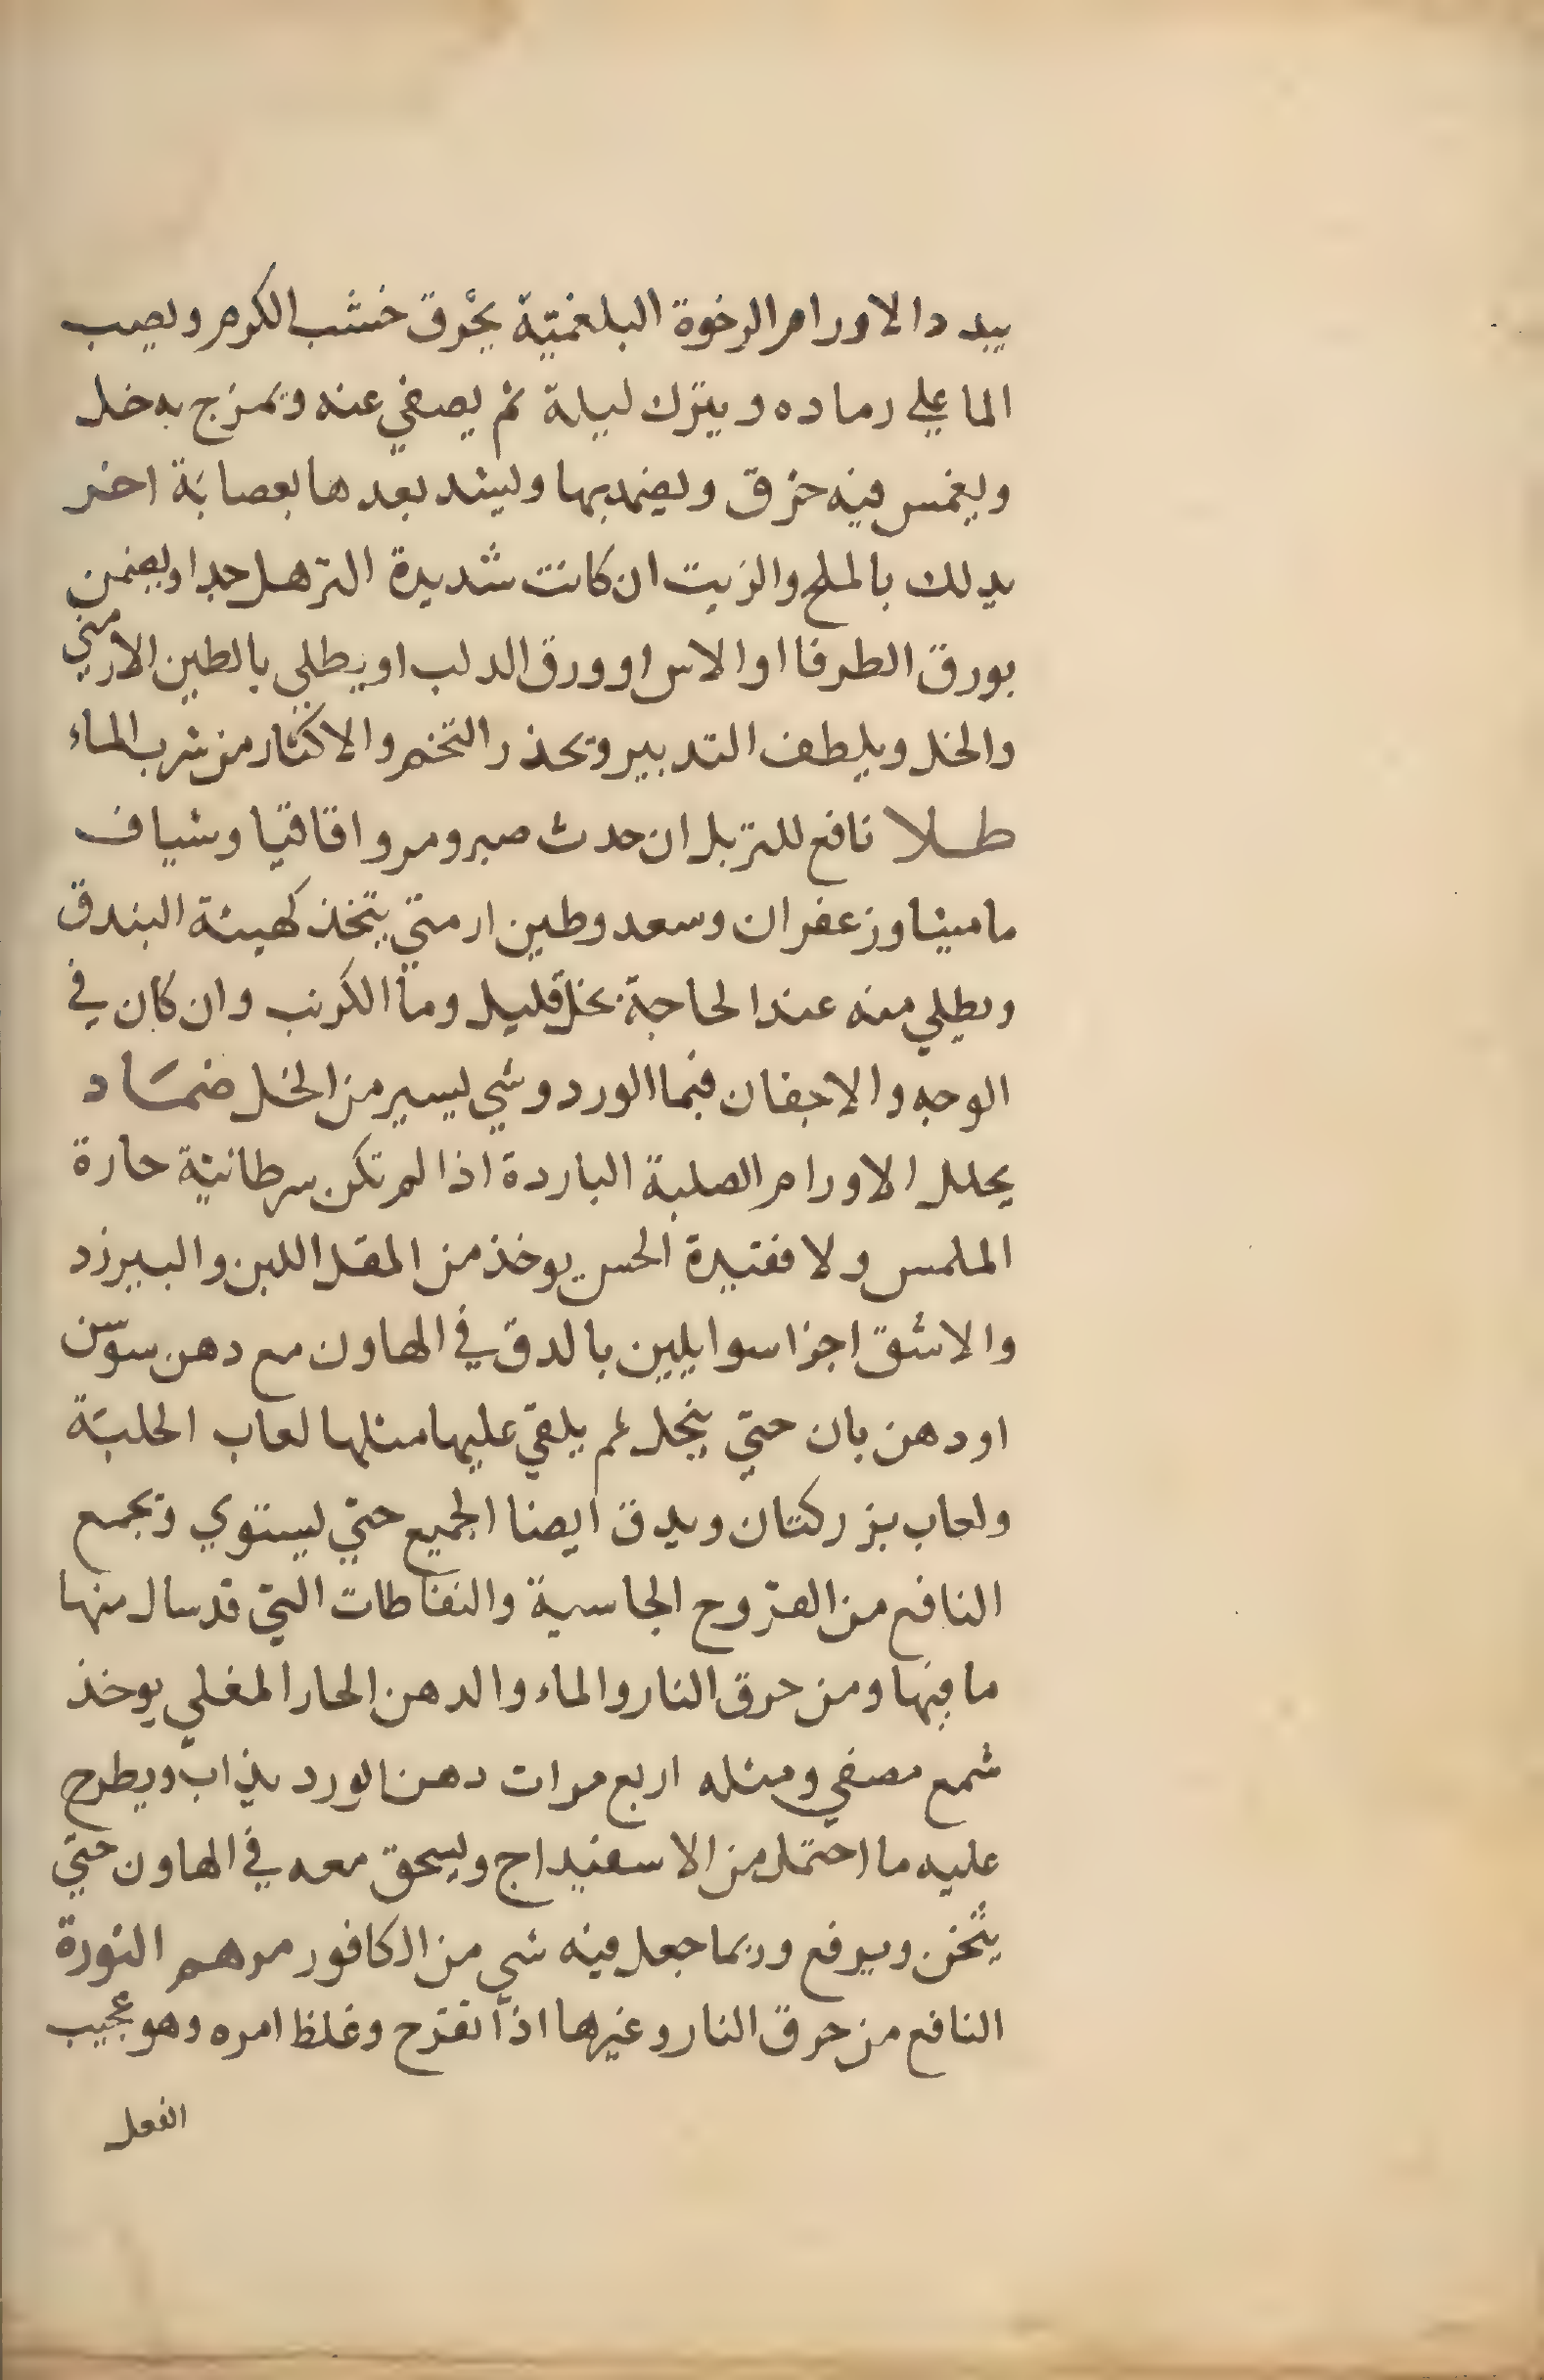 يبدد الاورام الرخوة البلغميّة يحْرق خشب الكرم ويصب
الما علي رماده ويترك ليلة ثم يصفي عنه ويمزج به خل
ويغمس فيه خرق ويضمد بها ويشد بعدها بعصابَة اخر
يدلك بالملح والزيت ان كانت شديدة الترهل جدا ويضمن
بورق الطرفا او الاس او ورق الدلب او يطلي بالطين الارمني
والخل ويلطف التدبير ويحذر التخم والاكثار من شرب الماء
طلا نافع للتربل ان حدث صبر ومر واقاقيا وشياف
ماميثا وزعفران وسعد وطين ارمني يتخذ كهيئة البندق
ويطلي منه عند الحاجة بخل قليل وما الكرنب وان كان في
الوجه والاجفان فبما الورد وشي يسير من الخل ضمَاد
يحلل الاورام الصلبة الباردة اذا لم تكن سرطانية حارة
الملمس ولا فقيرة الحس يوخذ من المقل اللين والبيرزد
والاشق اجزا سوا يلين بالدق في الهاون مع دهن سوسن
او دهن بان حتي ينحل ثم يلقي عليها مثلها لعاب الحلبَة
ولعاب بزر كتان ويدق ايضا الجميع حتي يستوي ويجمع
النافع من القروح الجاسية والنفاطات التي قد سال منها
ما فيها ومن حرق النار والماء والدهن الحار المغلي يوخذ
شمع مصفي ومثله اربع مرات دهن الورد يذاب ويطرح
عليه ما احتمل من الاسفيداج ويسحق معه في الهاون حتي
يثخن ويرفع وربما جعل فيه شي من الكافور مرهم النورة
النافع من حرق النار وغيرها اذا تقرح وغلظ امره وهو عجيب
الفعل